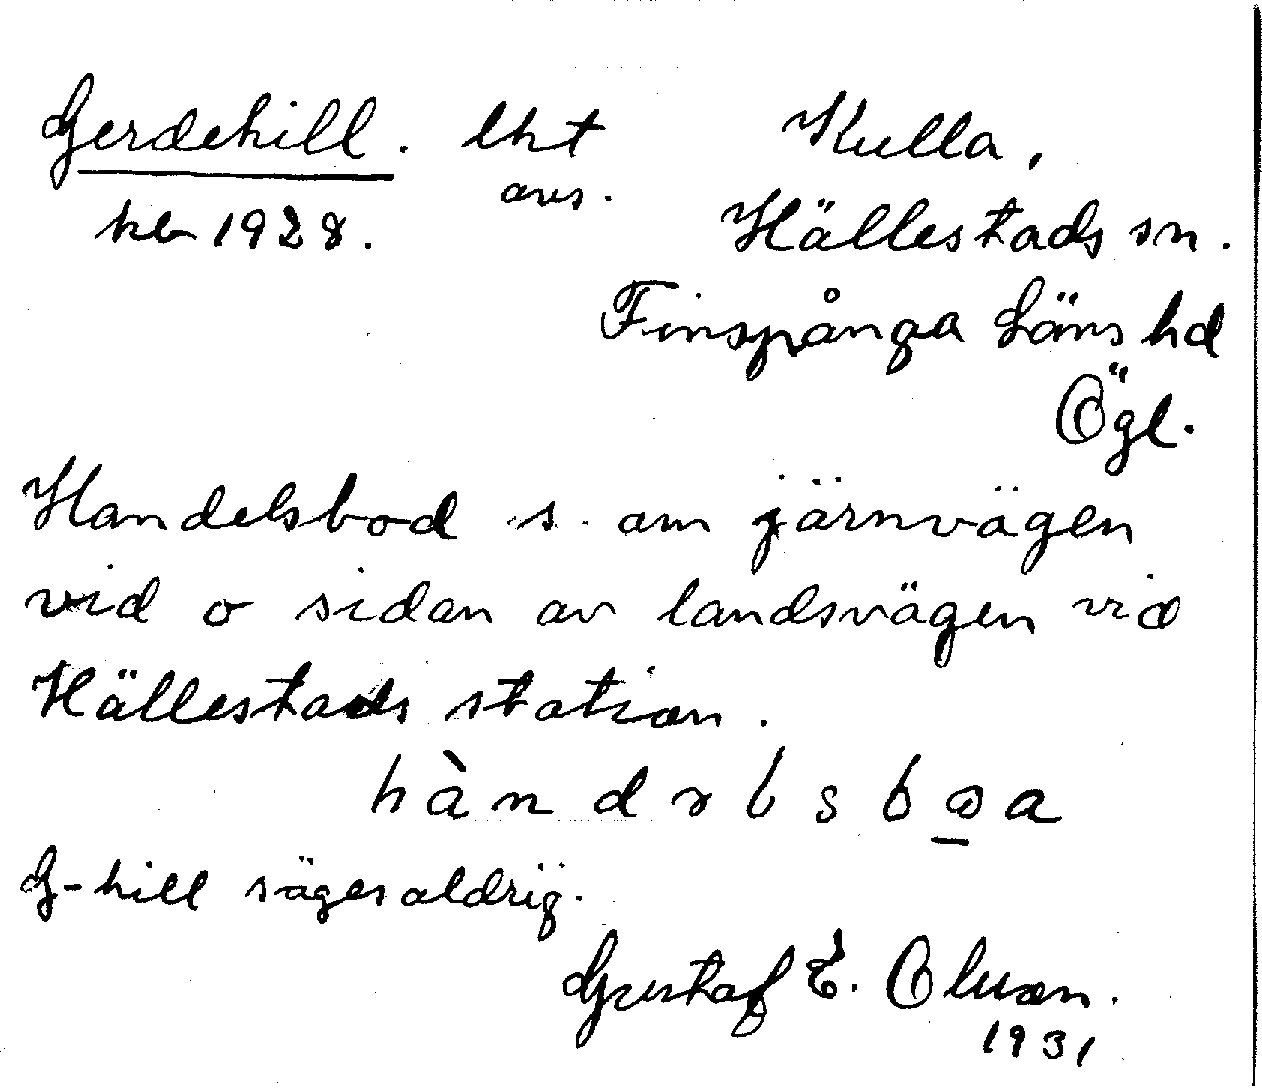 Gerdehill. lht Kulla,
avs. Hällestads sn.
1928.
Finspånga Läns hd
Ögl.
Handelsbod s. om järnvägen
vid o sidan av landsvägen vid
Hällestads station.
G-hill säges aldrig.
Gustaf E. Olsson.
1931